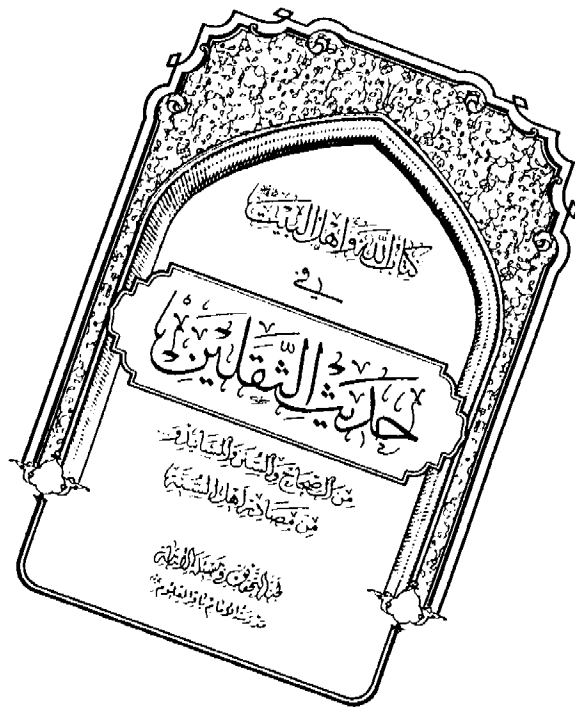 كتاب الله وأهل البيت
في
حديث الثقلين
من الصحاح والسنن والمسانيد و
من مصادر أهل السنة
لجنة التحقيق في مسألة الإمامة
مدرسة الإمام باقر العلوم